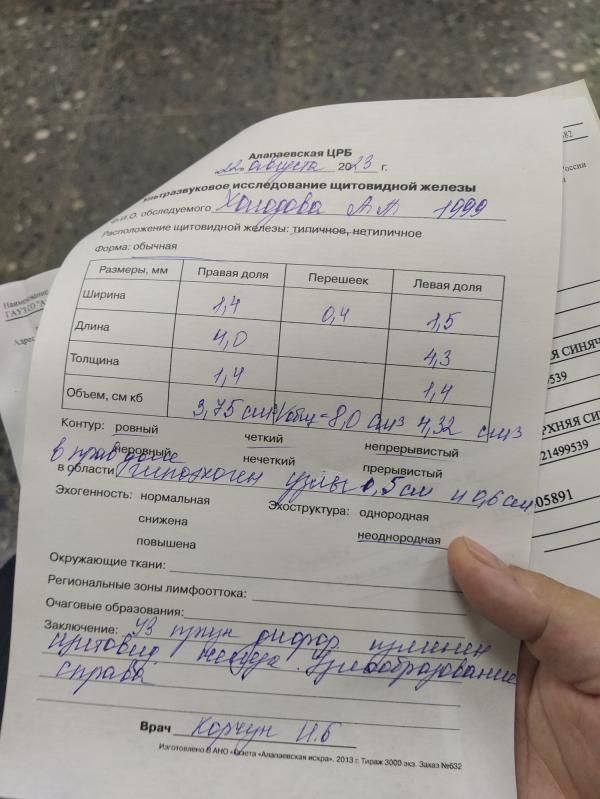 Алапаевская ЦРБ
22 августа 2023 г.
Ультразвуковое исследование щитовидной железы
Ф.И.О. обследуемого Холодова А М 1999
Расположение щитовидной железы: типичное, нетипичное
Форма: обычная
Размеры, мм Правая доля Перешеек Левая доля
Ширина 1,4 0,4 1,5
Длина 4,0 4,3
Толщина 1,4 1,4
Объем, см кб 3,75 см³ Vобщ = 8,0 см³ 4,32 см³
Контур: ровный четкий непрерывистый
неровный нечеткий прерывистый
в прав доле
в области гипоэхоген узлы 0,5 см и 0,6 см
Эхогенность: нормальная Эхоструктура: однородная
снижена неоднородная
повышена
Окружающие ткани:
Региональные зоны лимфооттока:
Очаговые образования:
Заключение: УЗ диффуз изменен
щитовид железа. Узлообразование
справа
Врач Корчун Н.Б
Изготовлено в АНО «Газета «Алапаевская искра». 2013 г. Тираж 3000 экз. Заказ №632
Наименование
Адрес
682
России
539
21499539
05891